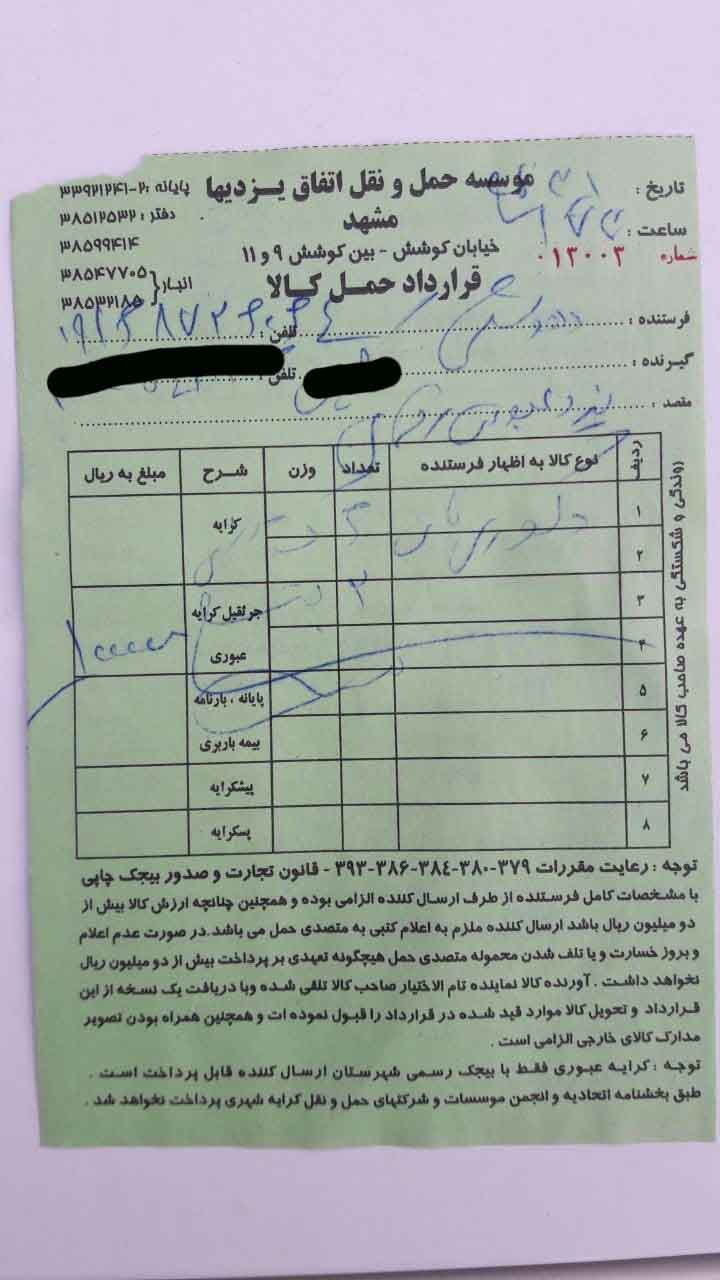 موسسه حمل و نقل اتفاق یزدیها
مشهد
خیابان کوشش - بین کوشش ۹ و ۱۱
قرارداد حمل کالا
پایانه : ۲-۳۳۹۲۱۲۴۱
دفتر : ۳۸۵۱۲۵۳۲
۳۸۵۹۹۴۱۴
انبار { ۳۸۵۴۷۷۰۵
۳۸۵۳۲۱۸۵
تاریخ :
ساعت :
شماره ۰۱۳۰۰۳
فرستنده : تلفن :
گیرنده : تلفن :
مقصد :
ردیف نوع کالا به اظهار فرستنده تعداد وزن شرح مبلغ به ریال
۱ کرایه
۲
۳ ۳ جرثقیل کرایه
۴ عبوری
۵ پایانه ، بارنامه
۶ بیمه باربری
۷ پیشکرایه
۸ پسکرایه
روندگی و شکستگی به عهده صاحب کالا می باشد
توجه : رعایت مقررات ۳۷۹-۳۸۰-۳۸۴-۳۸۶-۳۹۳ - قانون تجارت و صدور بیجک چاپی
با مشخصات کامل فرستنده از طرف ارسال کننده الزامی بوده و همچنین چنانچه ارزش کالا بیش از
دو میلیون ریال باشد ارسال کننده ملزم به اعلام کتبی به متصدی حمل می باشد.در صورت عدم اعلام
و بروز خسارت و یا تلف شدن محموله متصدی حمل هیچگونه تعهدی بر پرداخت بیش از دو میلیون ریال
نخواهد داشت . آورنده کالا نماینده تام الاختیار صاحب کالا تلقی شده وبا دریافت یک نسخه از این
قرارداد و تحویل کالا موارد قید شده در قرارداد را قبول نموده ات و همچنین همراه بودن تصویر
مدارک کالای خارجی الزامی است .
توجه : کرایه عبوری فقط با بیجک رسمی شهرستان ارسال کننده قابل پرداخت است .
طبق بخشنامه اتحادیه و انجمن موسسات و شرکتهای حمل و نقل کرایه شهری پرداخت نخواهد شد .